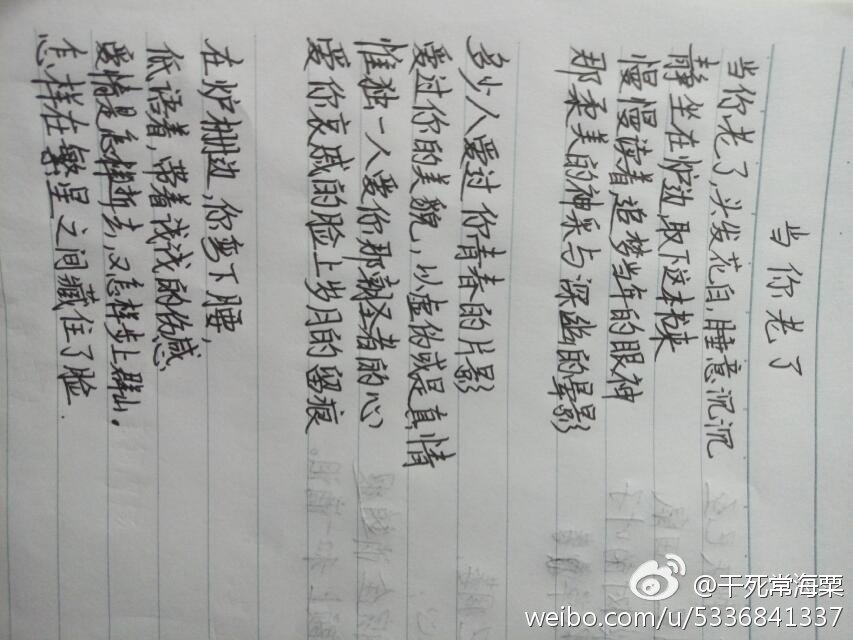 当你老了
当你老了,头发花白,睡意沉沉
静坐在炉边,取下这本书来
慢慢读着,追梦当年的眼神
那柔美的神采与深幽的晕影
多少人爱过你青春的片影
爱过你的美貌,以虚伪或是真情
惟独一人爱你那朝圣者的心
爱你哀戚的脸上岁月的留痕
在炉栅边,你弯下腰,
低语着,带着浅浅的伤感
爱情是怎样逝去,又怎样步上群山,
怎样在繁星之间藏住了脸.
@干死常海粟
weibo.com/u/5336841337